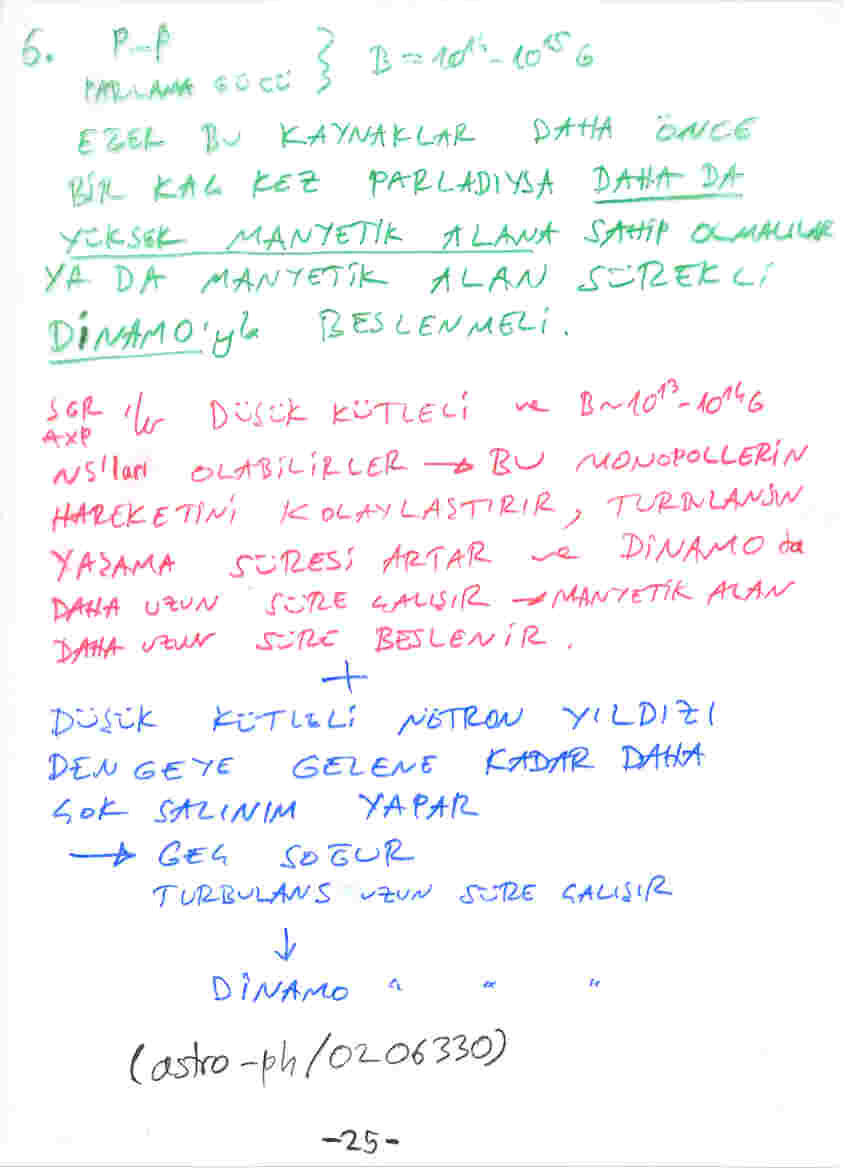 6. P-Ṗ
PARLAMA GÜCÜ } B = 10¹⁴ - 10¹⁵ G
EĞER BU KAYNAKLAR DAHA ÖNCE
BİR KAÇ KEZ PARLADIYSA DAHA DA
YÜKSEK MANYETİK ALANA SAHİP OLMALILAR
YA DA MANYETİK ALAN SÜREKLİ
DİNAMO'yla BESLENMELİ.
SGR
AXP 'ler DÜŞÜK KÜTLELİ ve B~10¹³-10¹⁴G
NS'ları OLABİLİRLER → BU MONOPOLLERİN
HAREKETİNİ KOLAYLAŞTIRIR, TURBULANSIN
YAŞAMA SÜRESİ ARTAR ve DİNAMO da
DAHA UZUN SÜRE ÇALIŞIR → MANYETİK ALAN
DAHA UZUN SÜRE BESLENİR.
+
DÜŞÜK KÜTLELİ NÖTRON YILDIZI
DENGEYE GELENE KADAR DAHA
ÇOK SALINIM YAPAR
→ GEÇ SOĞUR
TURBULANS UZUN SÜRE ÇALIŞIR
↓
DİNAMO " " "
(astro-ph/0206330)
-25-